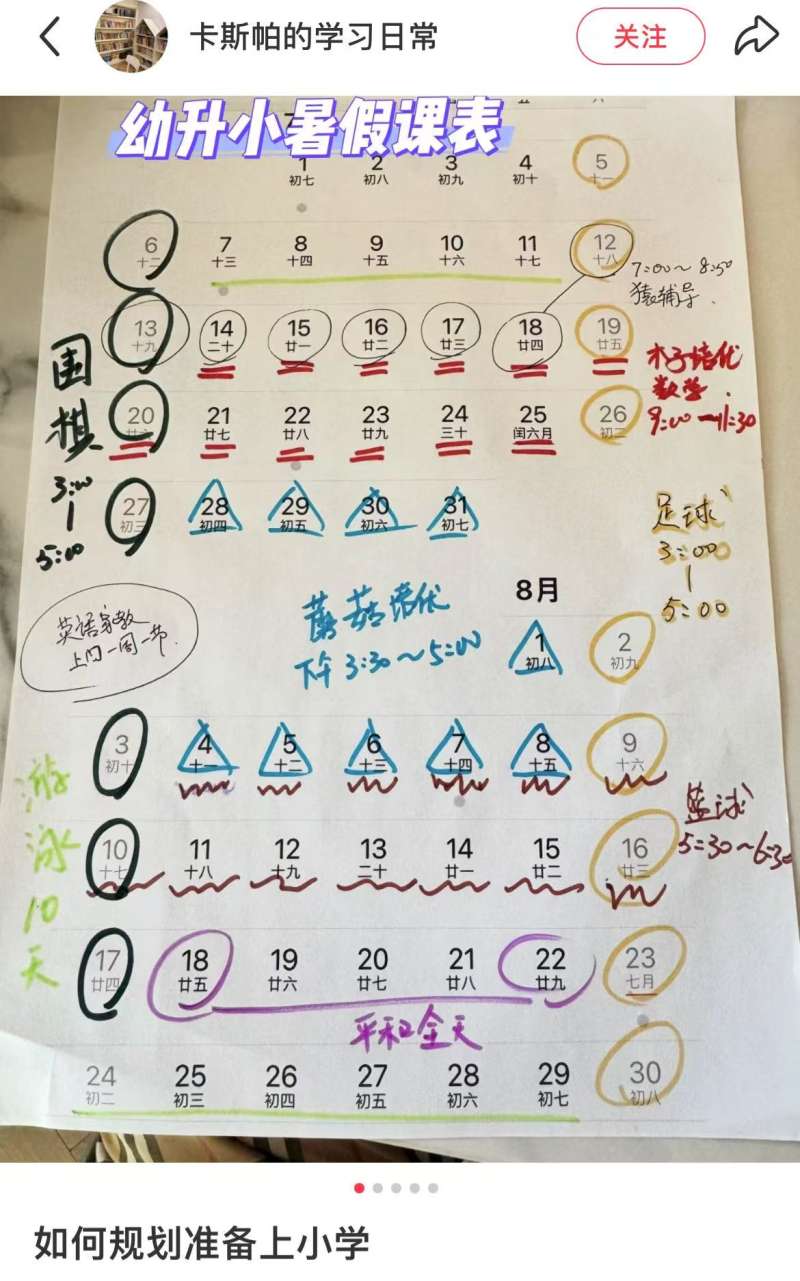 卡斯帕的学习日常
关注
幼升小暑假课表
1 2 3 4 5
初七 初八 初九 初十 十一
6 7 8 9 10 11 12
十二 十三 十四 十五 十六 十七 十八
7:00～8:50
猿辅导.
13 14 15 16 17 18 19
十九 二十 廿一 廿二 廿三 廿四 廿五
木子培优
数学.
9:00—11:30
围棋
3:00
|
5:00
20 21 22 23 24 25 26
廿六 廿七 廿八 廿九 三十 闰六月 初二
27 28 29 30 31
初三 初四 初五 初六 初七
足球
3:00
|
5:00
8月
蘑菇培优
下午3:30～5:00
英语家教
上门一周一节.
1 2
初八 初九
3 4 5 6 7 8 9
初十 十一 十二 十三 十四 十五 十六
游泳10天
篮球
5:30～6:30
10 11 12 13 14 15 16
十七 十八 十九 二十 廿一 廿二 廿三
17 18 19 20 21 22 23
廿四 廿五 廿六 廿七 廿八 廿九 七月
平和全天
24 25 26 27 28 29 30
初二 初三 初四 初五 初六 初七 初八
如何规划准备上小学